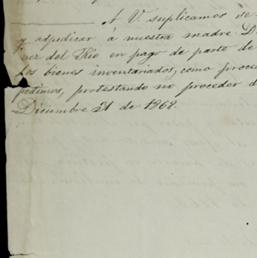 A V. suplicamos se
y adjudicar á nuestra madre D
ner del Rio en pago de parte de
los bienes inventariados, como proced
pedimos, protestando no proceder d
Diciembre 21 de 1862.